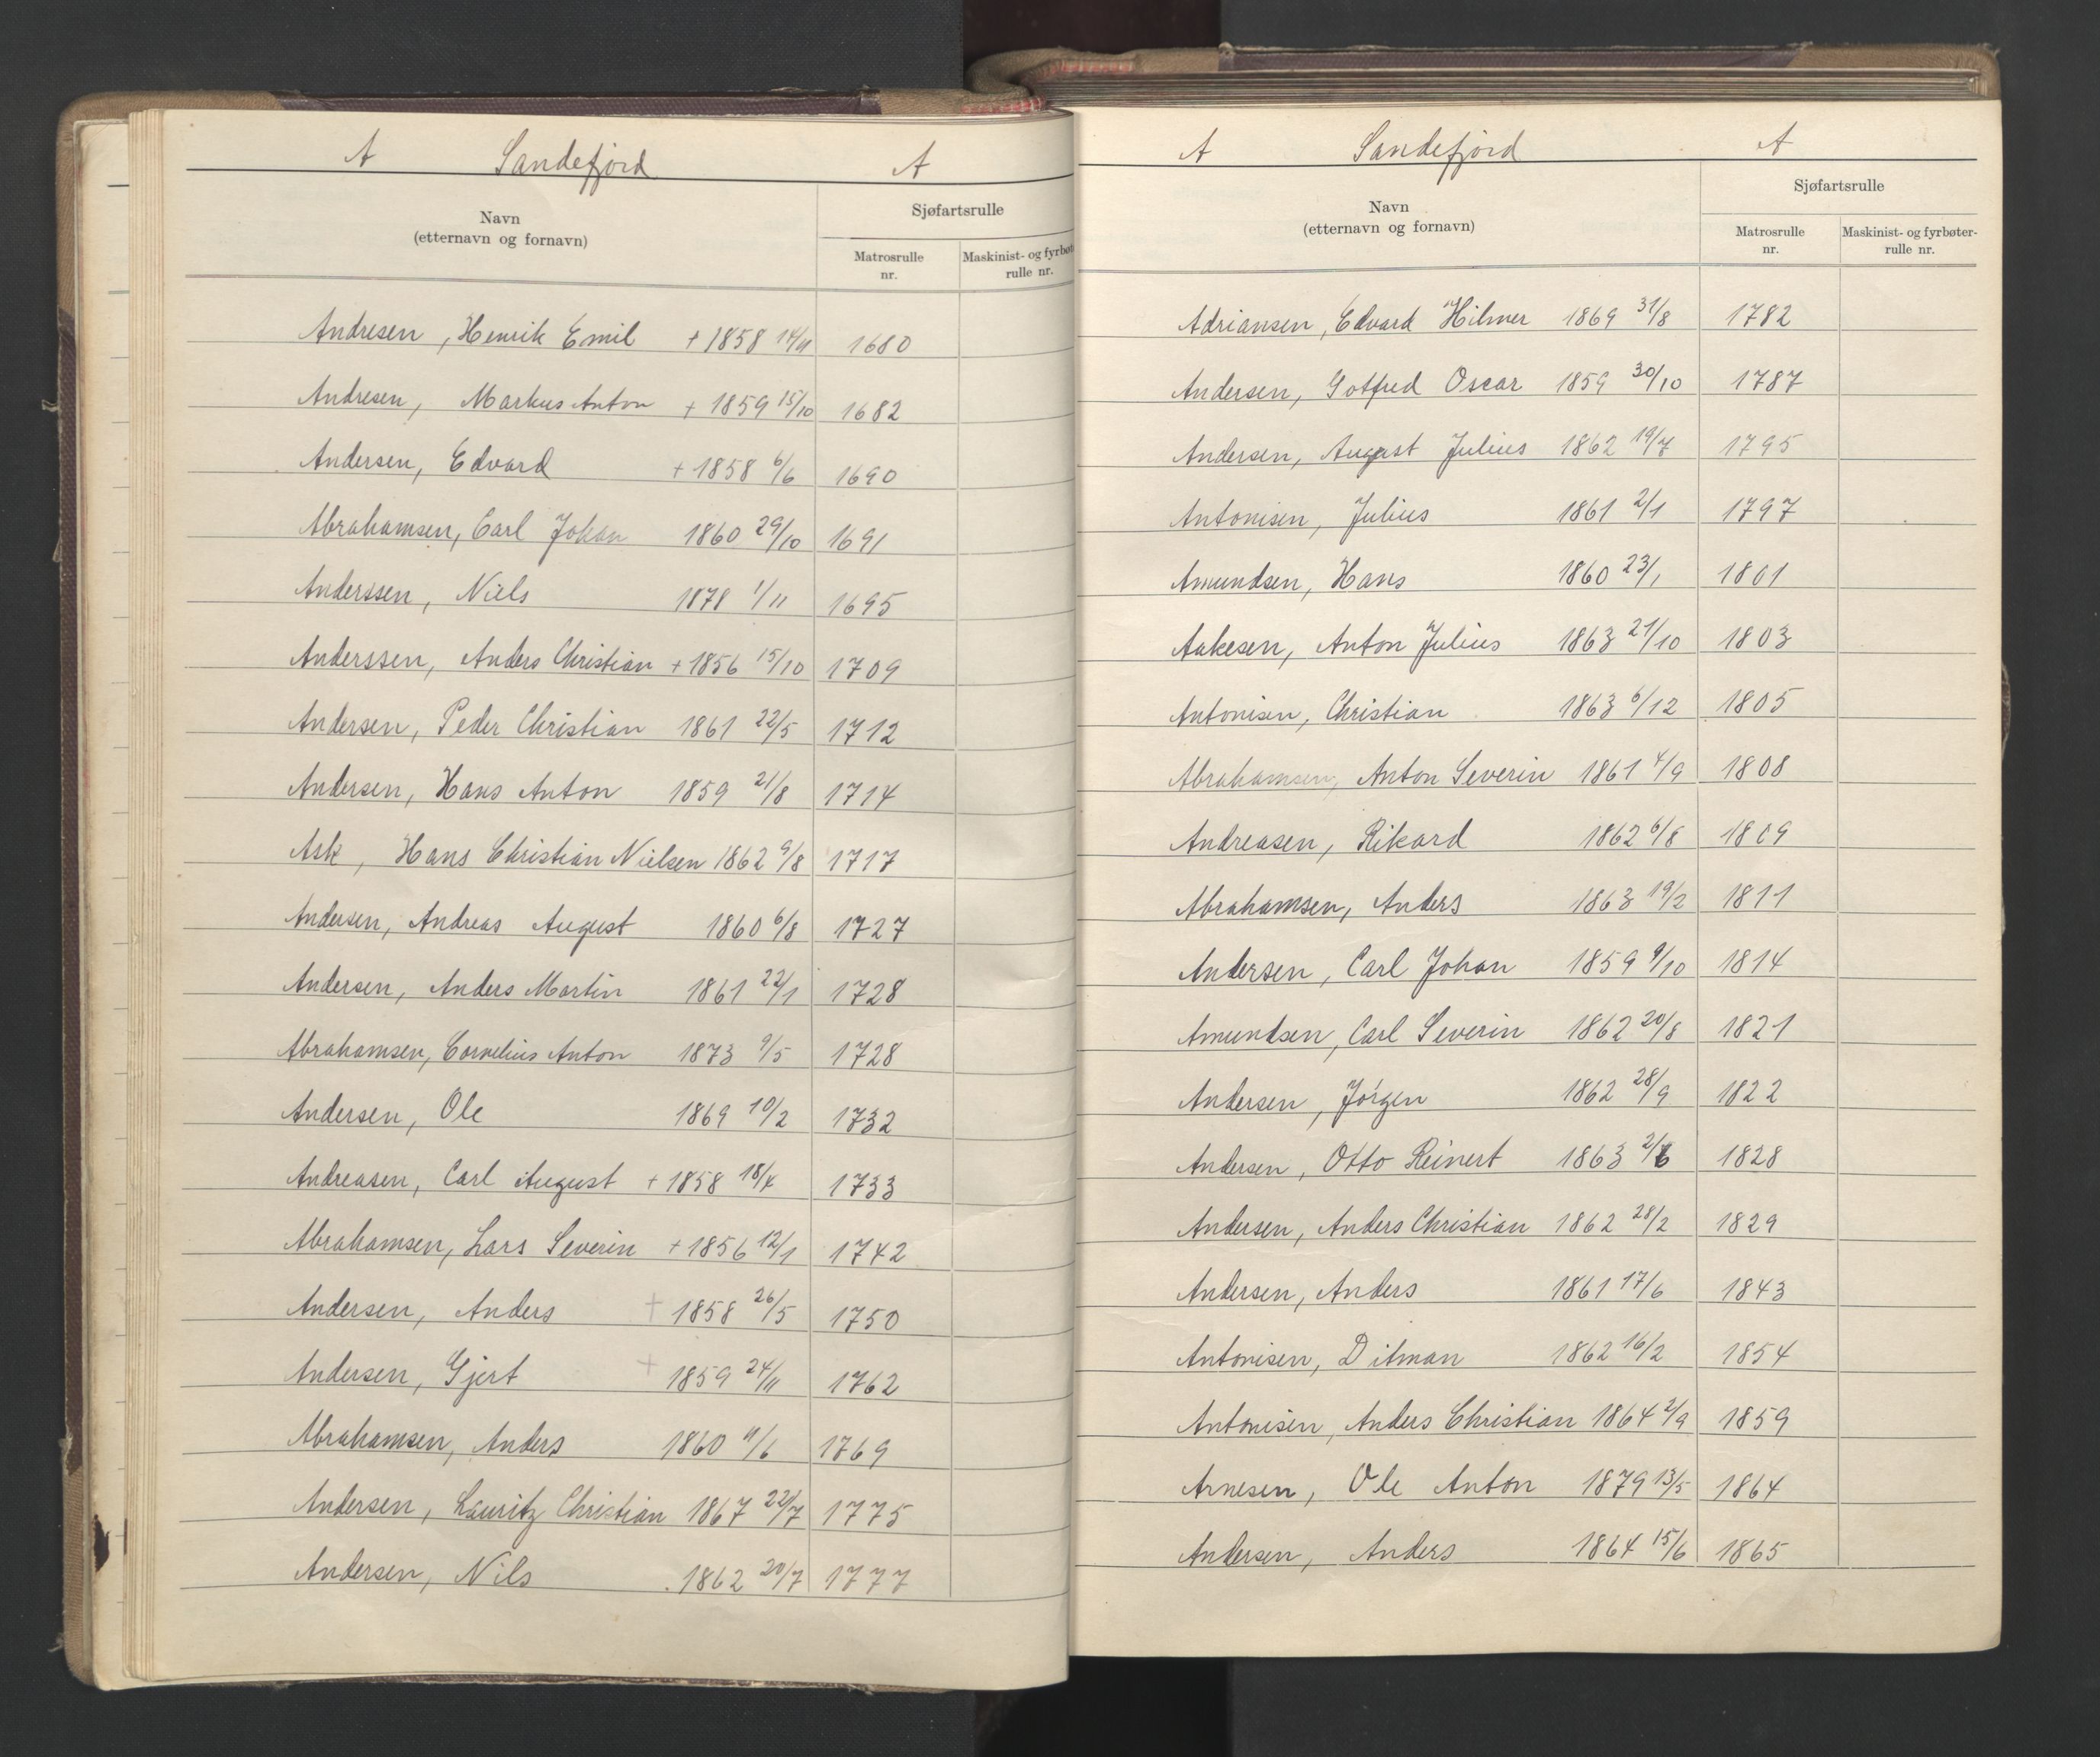 A Sandefjord A
Navn
(etternavn og fornavn)
Sjøfartsrulle
Matrosrulle
nr.
Maskinist- og fyrbøt
rulle nr.
Andresen, Henrik Emil + 1858 14/11 1680
Andresen, Markus Anton + 1859 15/10 1682
Andersen, Edvard + 1858 6/6 1690
Abrahamsen, Carl Johan 1860 29/10 1691
Anderssen, Niels 1878 1/11 1695
Anderssen, Anders Christian + 1856 15/10 1709
Andersen, Peder Christian 1861 22/5 1712
Andersen, Hans Anton 1859 21/8 1714
Ask, Hans Christian Nielsen 1862 9/8 1717
Andersen, Andreas August 1860 6/8 1727
Andersen, Anders Martin 1861 22/1 1728
Abrahamsen, Cornelius Anton 1873 9/5 1728
Andersen, Ole 1869 10/2 1732
Andreasen, Carl August + 1858 18/4 1733
Abrahamsen, Lars Severin + 1856 12/1 1742
Andersen, Anders + 1858 26/5 1750
Andersen, Gjert + 1859 24/11 1762
Abrahamsen, Anders 1860 11/6 1769
Andersen, Lauritz Christian 1867 22/7 1775
Andersen, Nils 1862 20/7 1777
A Sandefjord A
Navn
(etternavn og fornavn)
Sjøfartsrulle
Matrosrulle
nr.
Maskinist- og fyrbøter-
rulle nr.
Adriansen, Edvard Hilmer 1869 31/8 1782
Andersen, Gotfred Oscar 1859 30/10 1787
Andersen, August Julius 1862 19/7 1795
Antonisen, Julius 1861 2/1 1797
Amundsen, Hans 1860 23/1 1801
Aakesen, Anton Julius 1863 21/10 1803
Antonisen, Christian 1863 6/12 1805
Abrahamsen, Anton Severin 1861 4/9 1808
Andreasen, Rikard 1862 6/8 1809
Abrahamsen, Anders 1863 19/2 1811
Andersen, Carl Johan 1859 9/10 1814
Amundsen, Carl Severin 1862 20/8 1821
Andersen, Jørgen 1862 28/9 1822
Andersen, Otto Reinert 1863 1828
Andersen, Anders Christian 1862 28/2 1829
Andersen, Anders 1861 17/6 1843
Antonisen, Ditman 1862 16/2 1854
Antonisen, Anders Christian 1864 2/9 1859
Arnesen, Ole Anton 1879 13/5 1864
Andersen, Anders 1864 15/6 1865